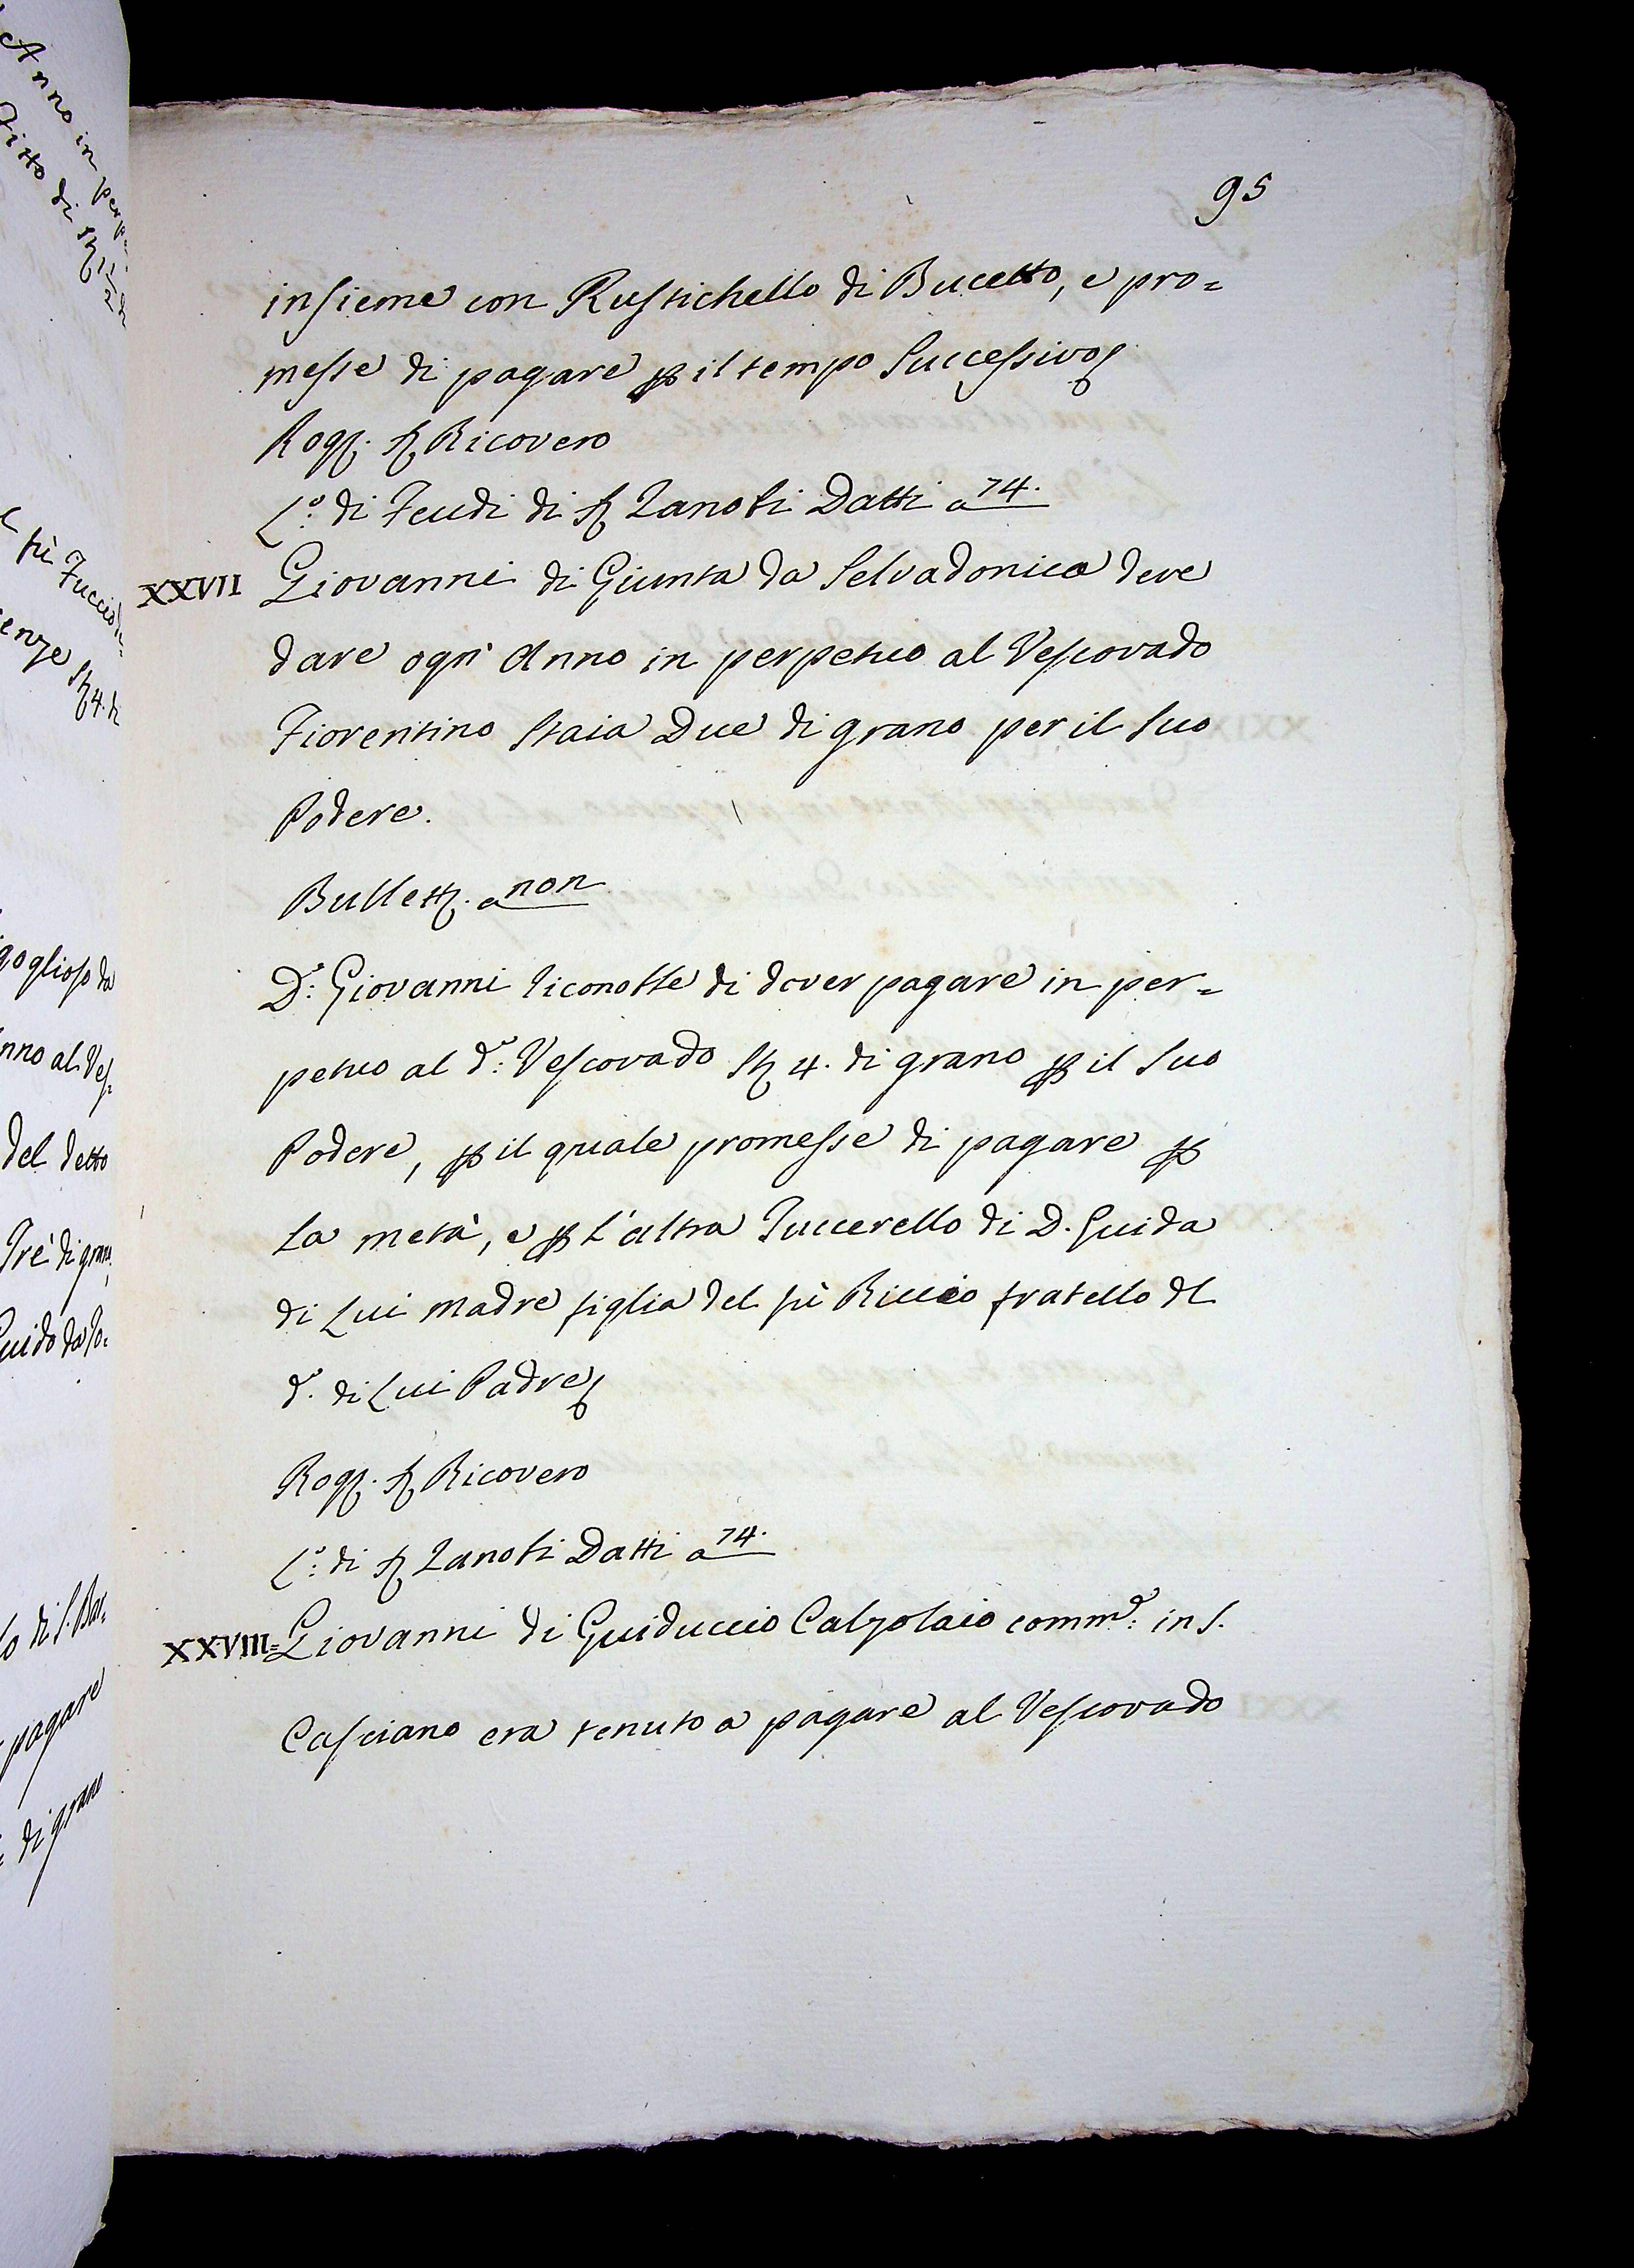 95
insieme con Rustichello di Bucetto, e pro=
messe di pagare p il tempo Successivo
Rog. S. Ricovero
L.o di Feudi di S. Zanobi Datti a 74.
XXVII Giovanni di Giunta da Selvadonica deve
dare ogn' Anno in perpetuo al Vescovado
Fiorentino Staia Due di grano per il suo
Podere.
Bullett. a non
D.o Giovanni riconobbe di dover pagare in per=
petuo al d.o Vescovado St. 4. di grano p il suo
Podere, p il quale promesse di pagare p
la metà, e p l'altra Puccerello di D. Guida
di Lui Madre figlia del fù Riccio fratello del
d.o di Lui Padre
Rog. S. Ricovero
L.o di S. Zanobi Datti a 74.
XXVIII= Giovanni di Guiduccio Calzolaio comm.e in S.
Casciano era tenuto a pagare al Vescovado
Anno in
Fitto di St. 1/2
fù Fuccio
enze St. 4. di
goglioso da
nno al Ves=
del detto
Tre di grano
Guido da
lo di S. Bar=
pagare
di grano